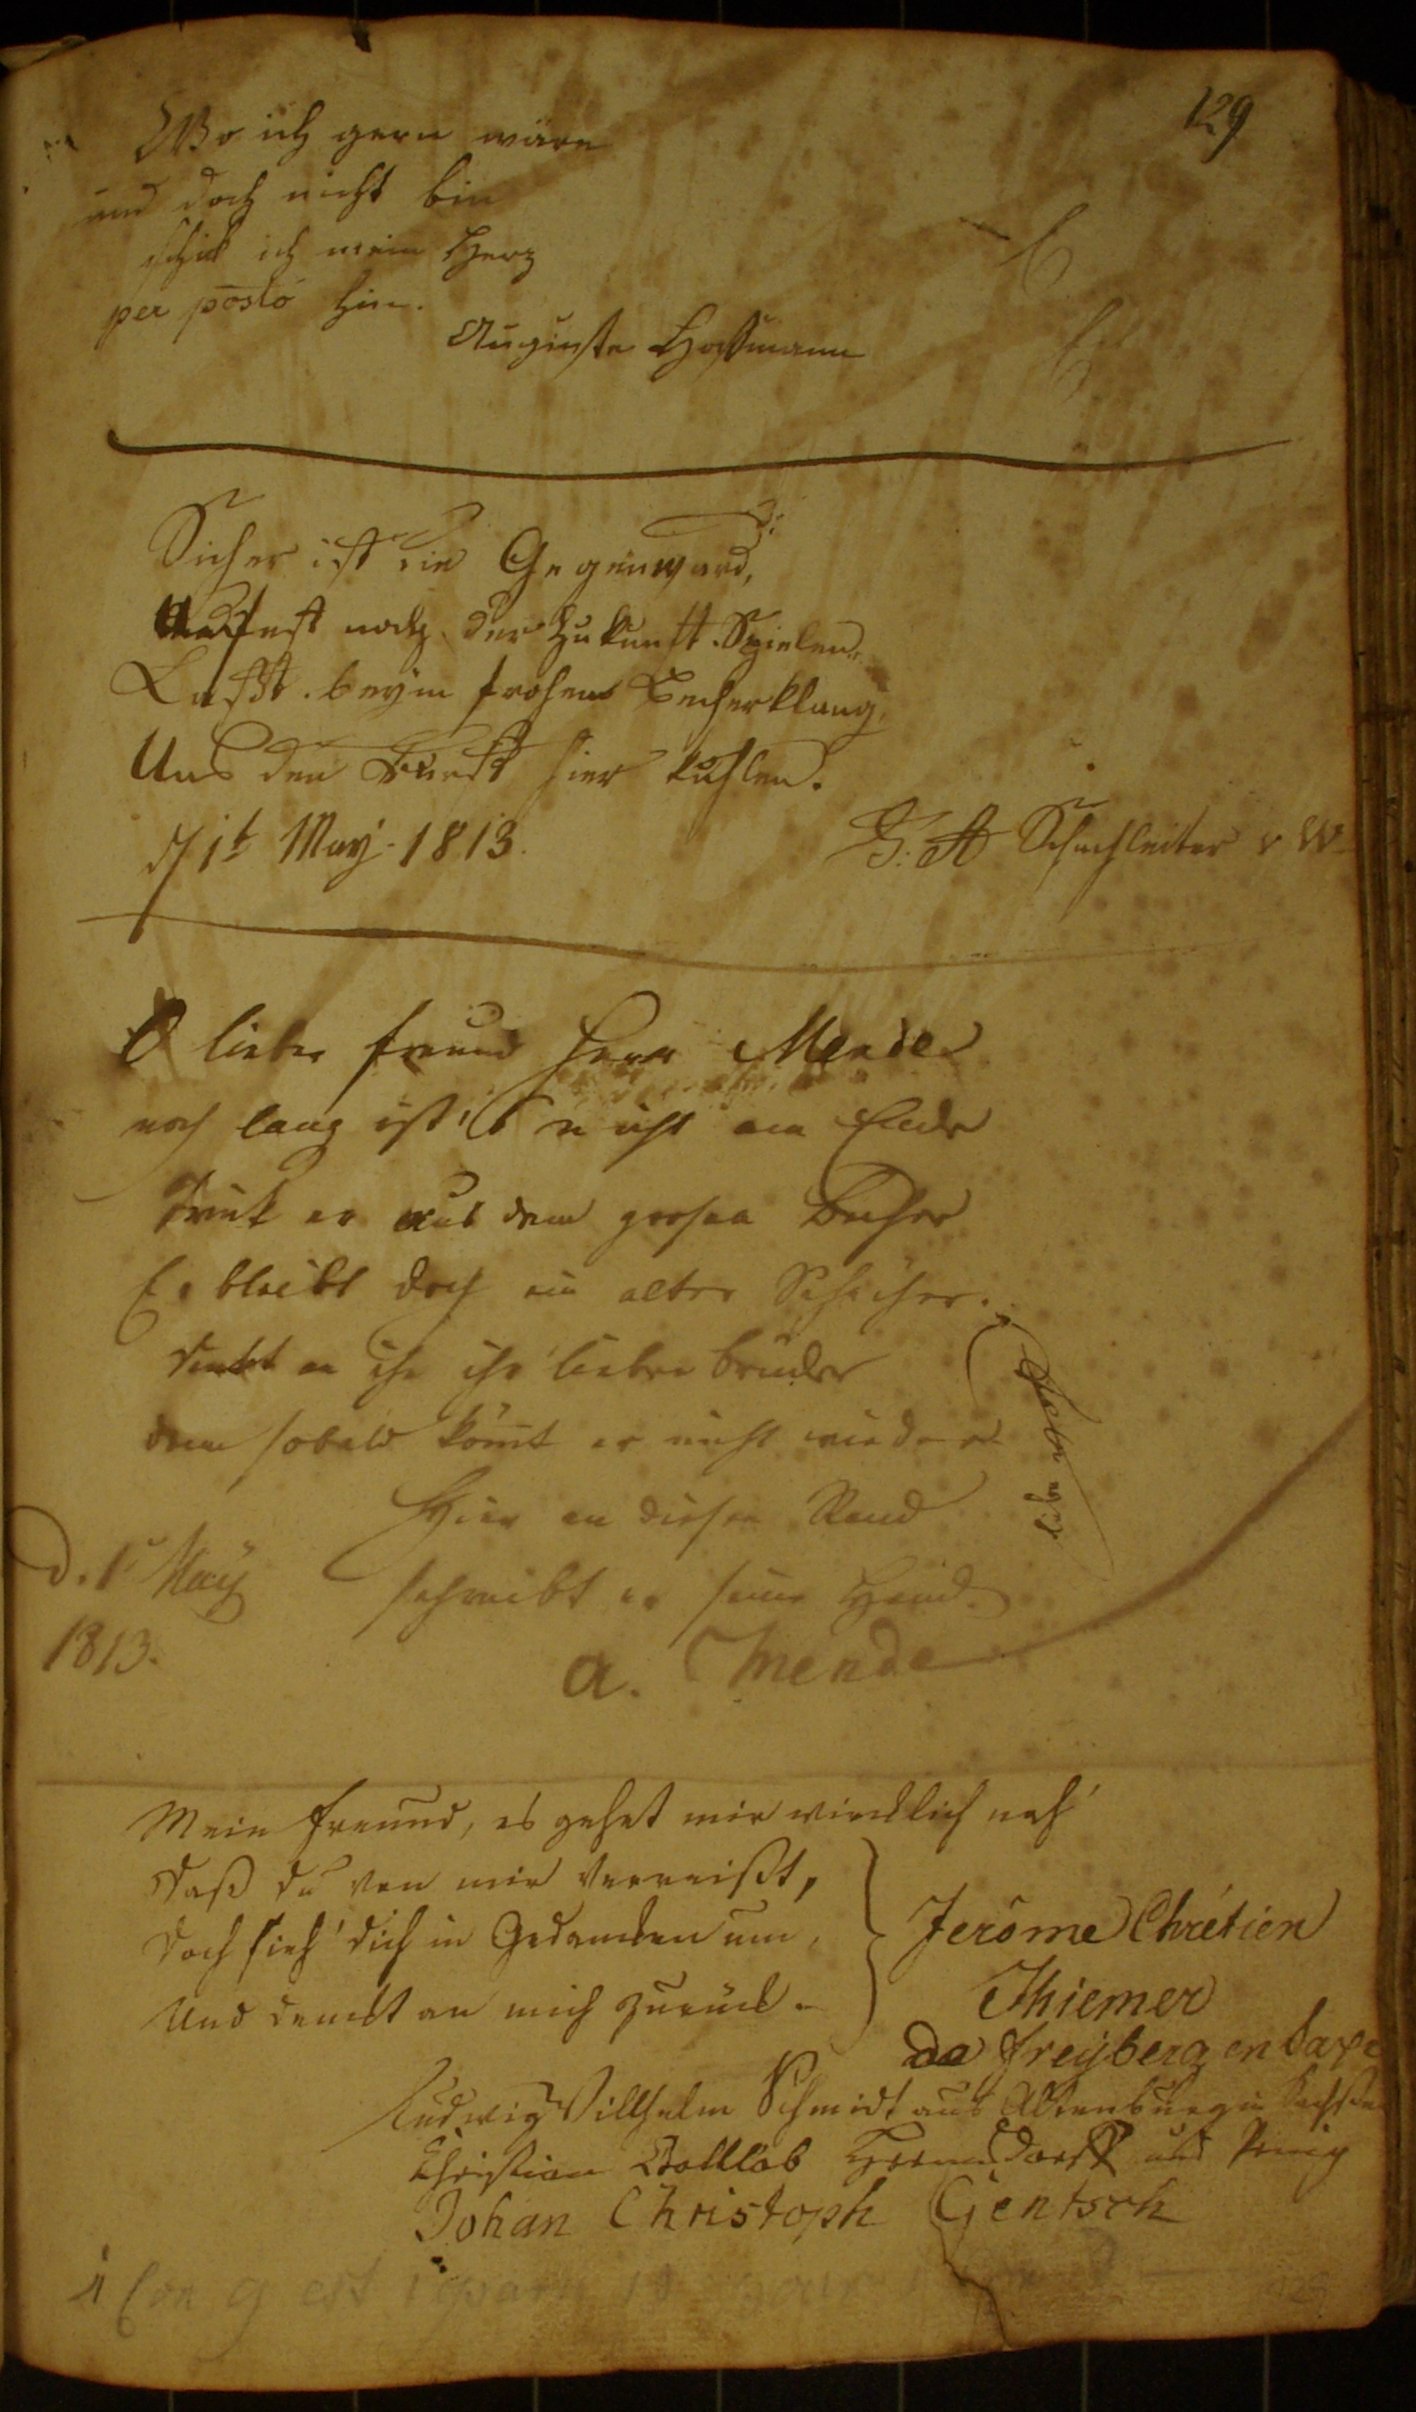 129
Wo ich gern wäre
und doch nicht bin
schick ich mein Herz
per posto hin.
Auguste Hoffmann
Sicher ist die Gegenward,
noch der Zukunft Spielen
Laßt beym frohen Becherklang,
Uns den Durst hier kühlen.
d 1t May. 1813.
G. A Schachleiter v W
O lieber freund Herr Mende
noch lang ist's nicht am Ende
Trink er aus dem grosen Becher
Er bleibt doch ein alter Schächer.
denkt an ihn ihr lieben brüder
denn sobald kömt er nicht wieder
Hier an diesen Rand
schreibt er seine Hand.
d. 1 May
1813.
a. Mende
Mein freund, es gehet mir wircklich nah'
Daß du von mir verreißt,
Doch sieh' dich in Gedancken um,
Und denckt an mich zurück.
Jerôme Chrétien
Thiemer
de Freyberg en Saxe
Ludwig Willhelm Schmidt aus Altenburg in Sachsen
Christian Gottlob Herrnsdorff aus Penig
Johan Christoph Gentsch